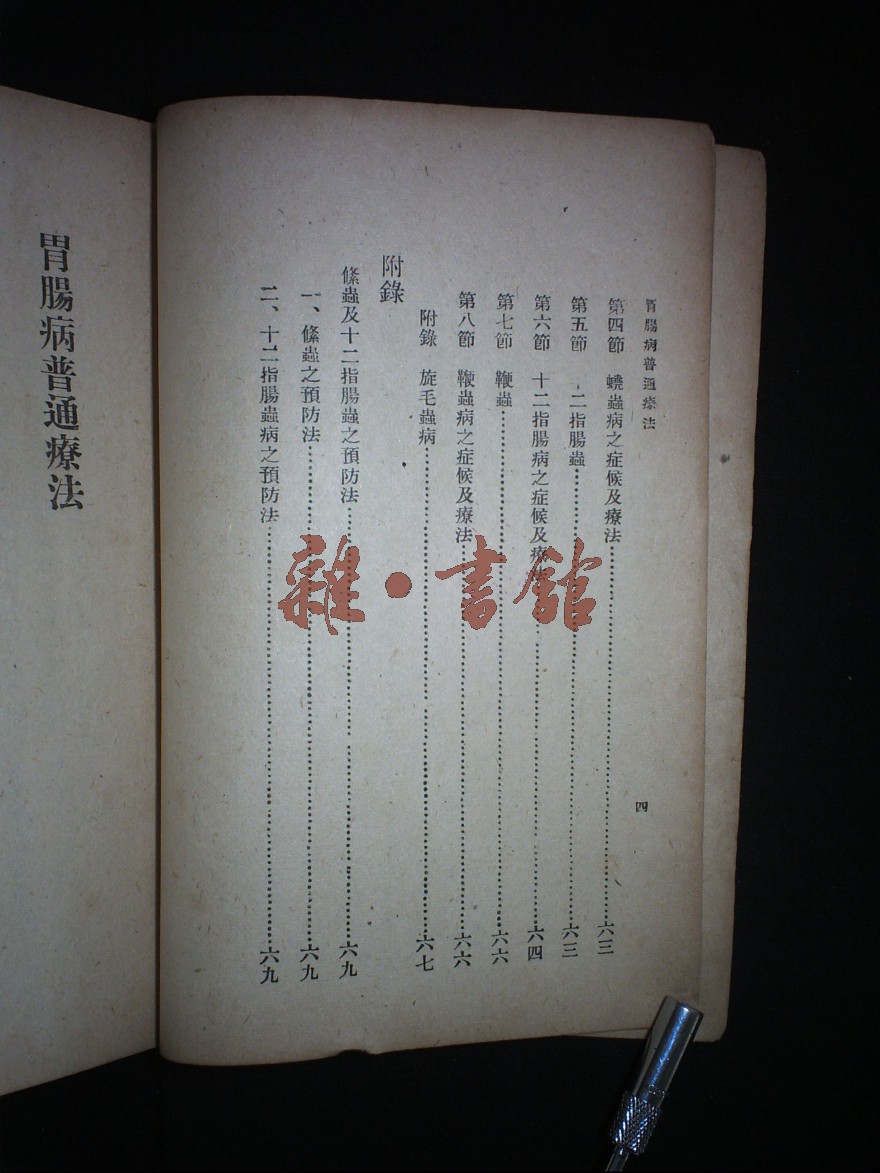 胃腸病普通療法
四
第四節　蟯蟲病之症候及療法……六三
第五節　二指腸蟲……六三
第六節　十二指腸病之症候及療法……六四
第七節　鞭蟲……六六
第八節　鞭蟲病之症候及療法……六六
附錄　旋毛蟲病……六七
附錄
絛蟲及十二指腸蟲之預防法……六九
一、絛蟲之預防法……六九
二、十二指腸蟲病之預防法……六九
胃腸病普通療法
雜·書館